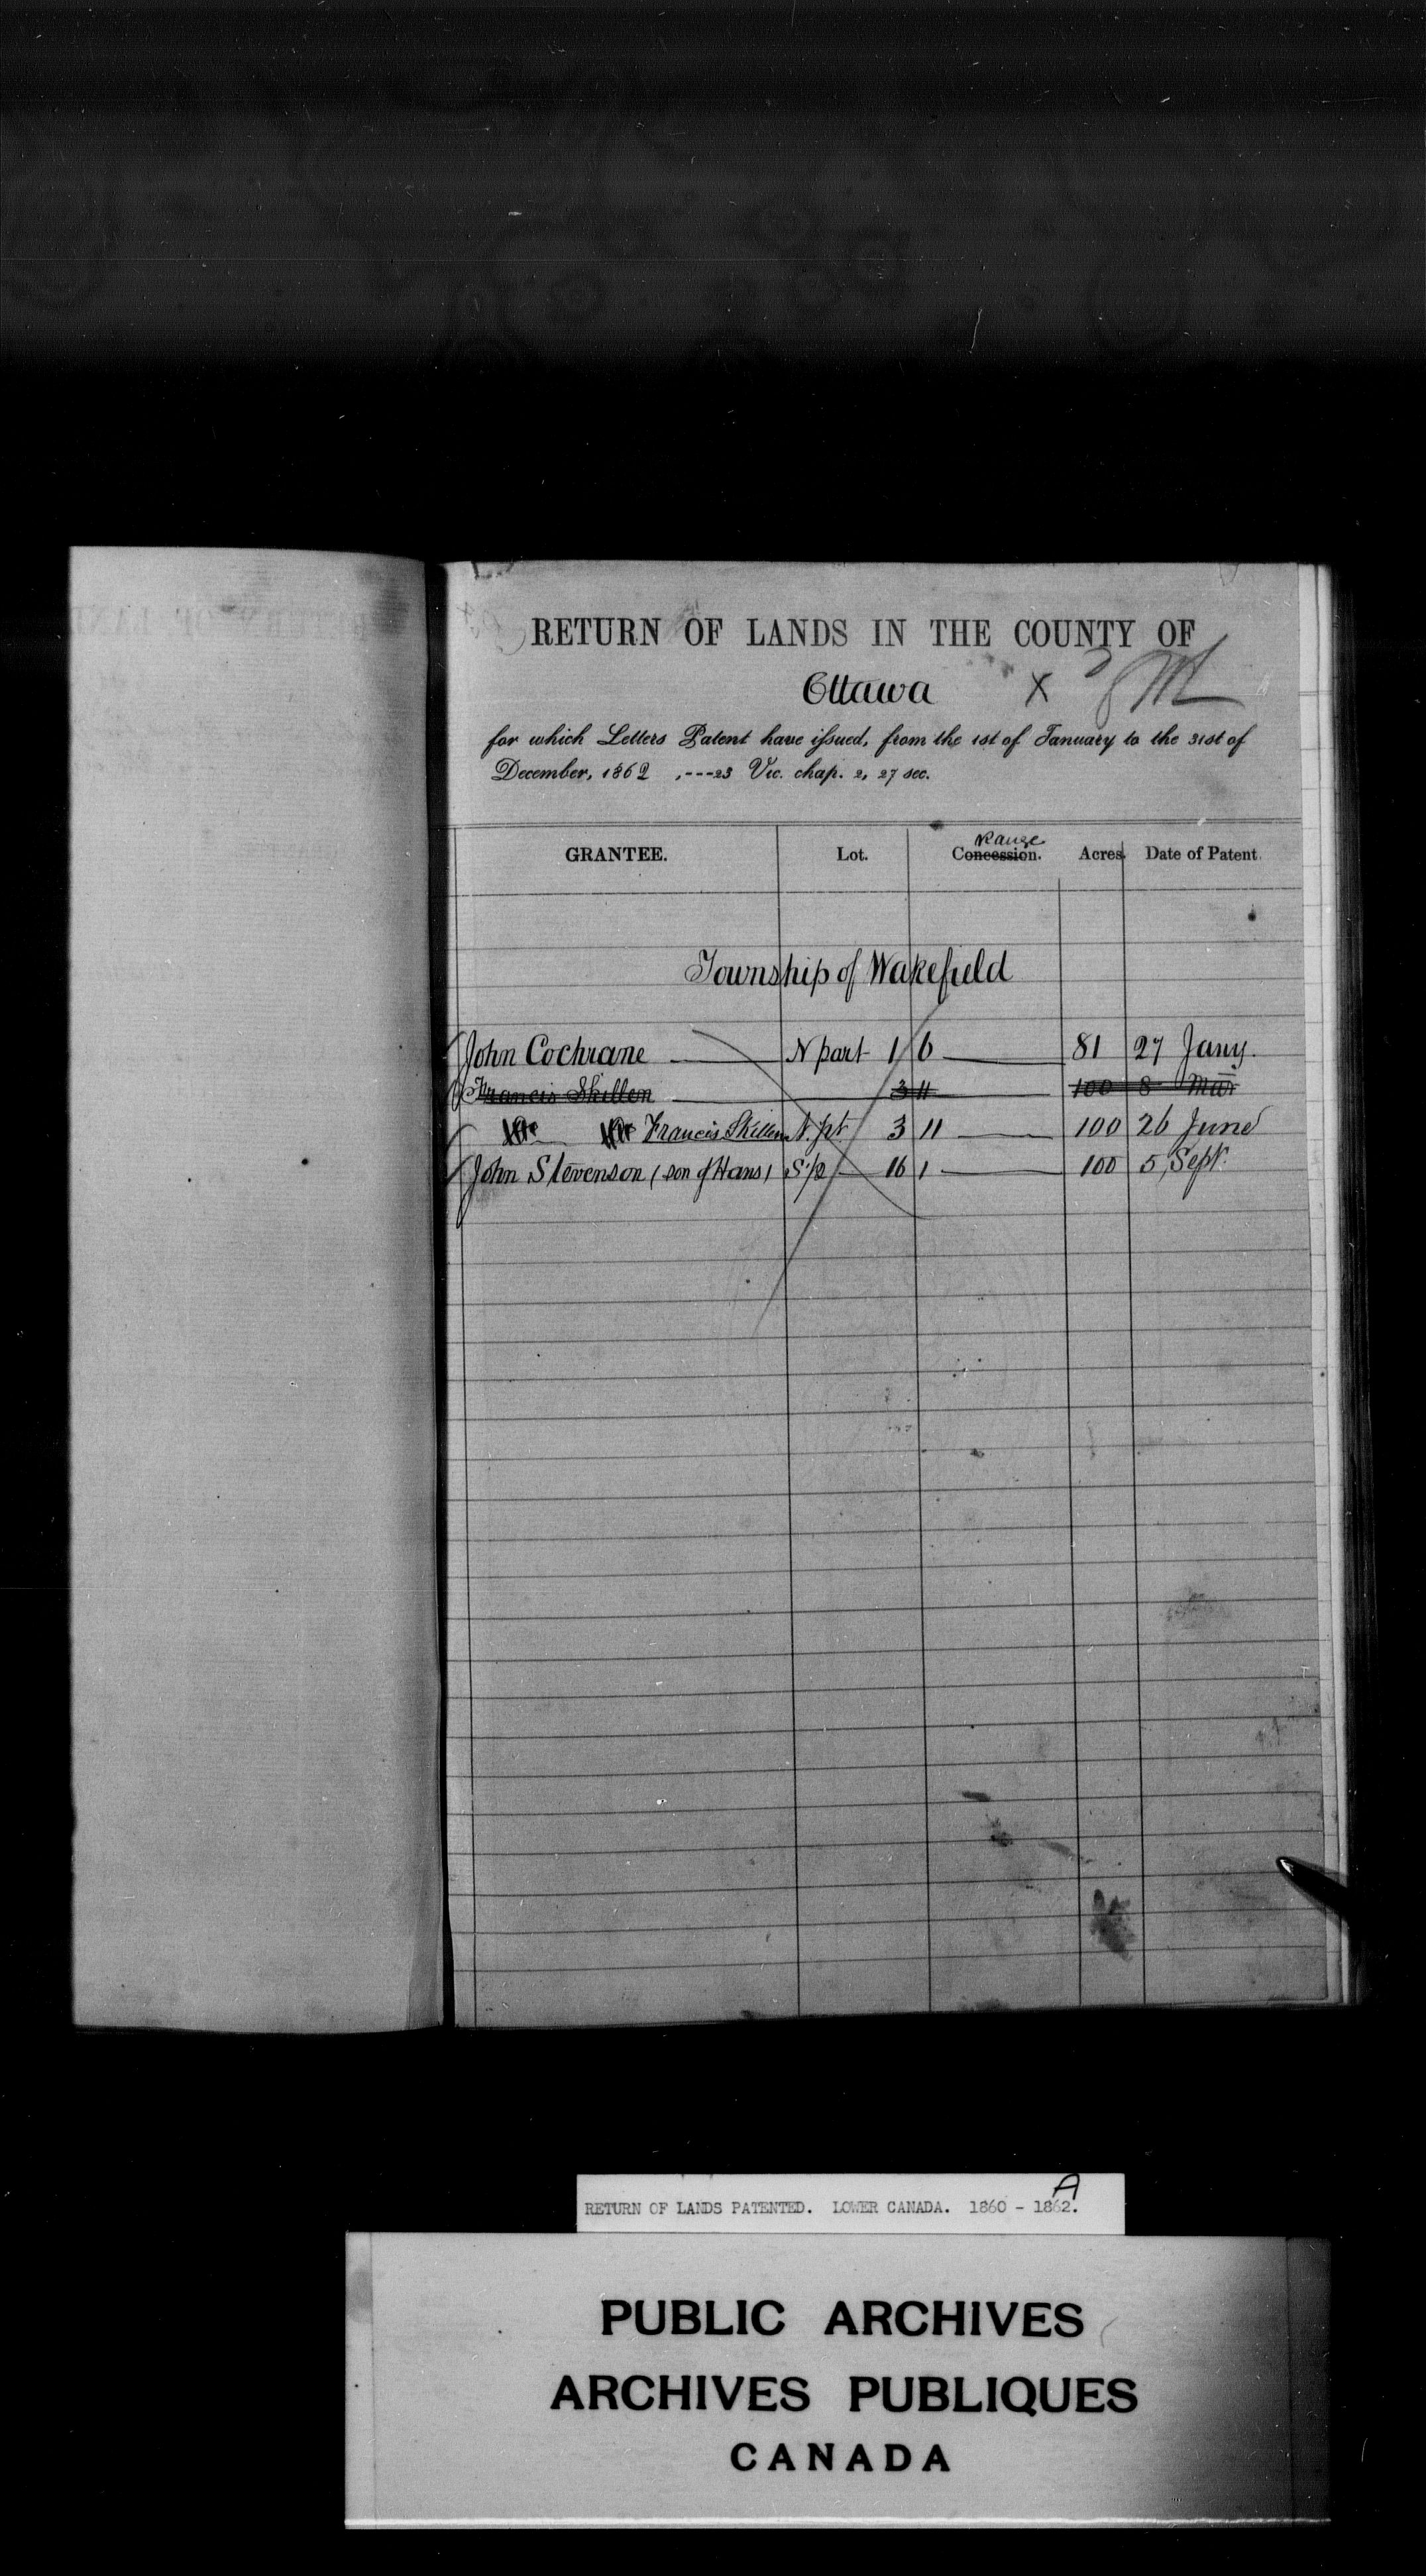 RETURN OF LANDS IN THE COUNTY OF
Ottawa X
for which Letters Patent have issued, from the 1st of January to the 31st of
December, 1862 ,---23 Vic. chap. 2, 27 sec.
Range
GRANTEE. Lot. Concession. Acres. Date of Patent.
Township of Wakefield
John Cochrane N part 1 6 81 27 Jany.
Francis Skillen 3 11 100 8 Mar
Francis Skillen N. pt. 3 11 100 26 June
John Stevenson (son of Hans) S½ 16 1 100 5 Sept.
A
RETURN OF LANDS PATENTED. LOWER CANADA. 1860 - 1862.
PUBLIC ARCHIVES
ARCHIVES PUBLIQUES
CANADA